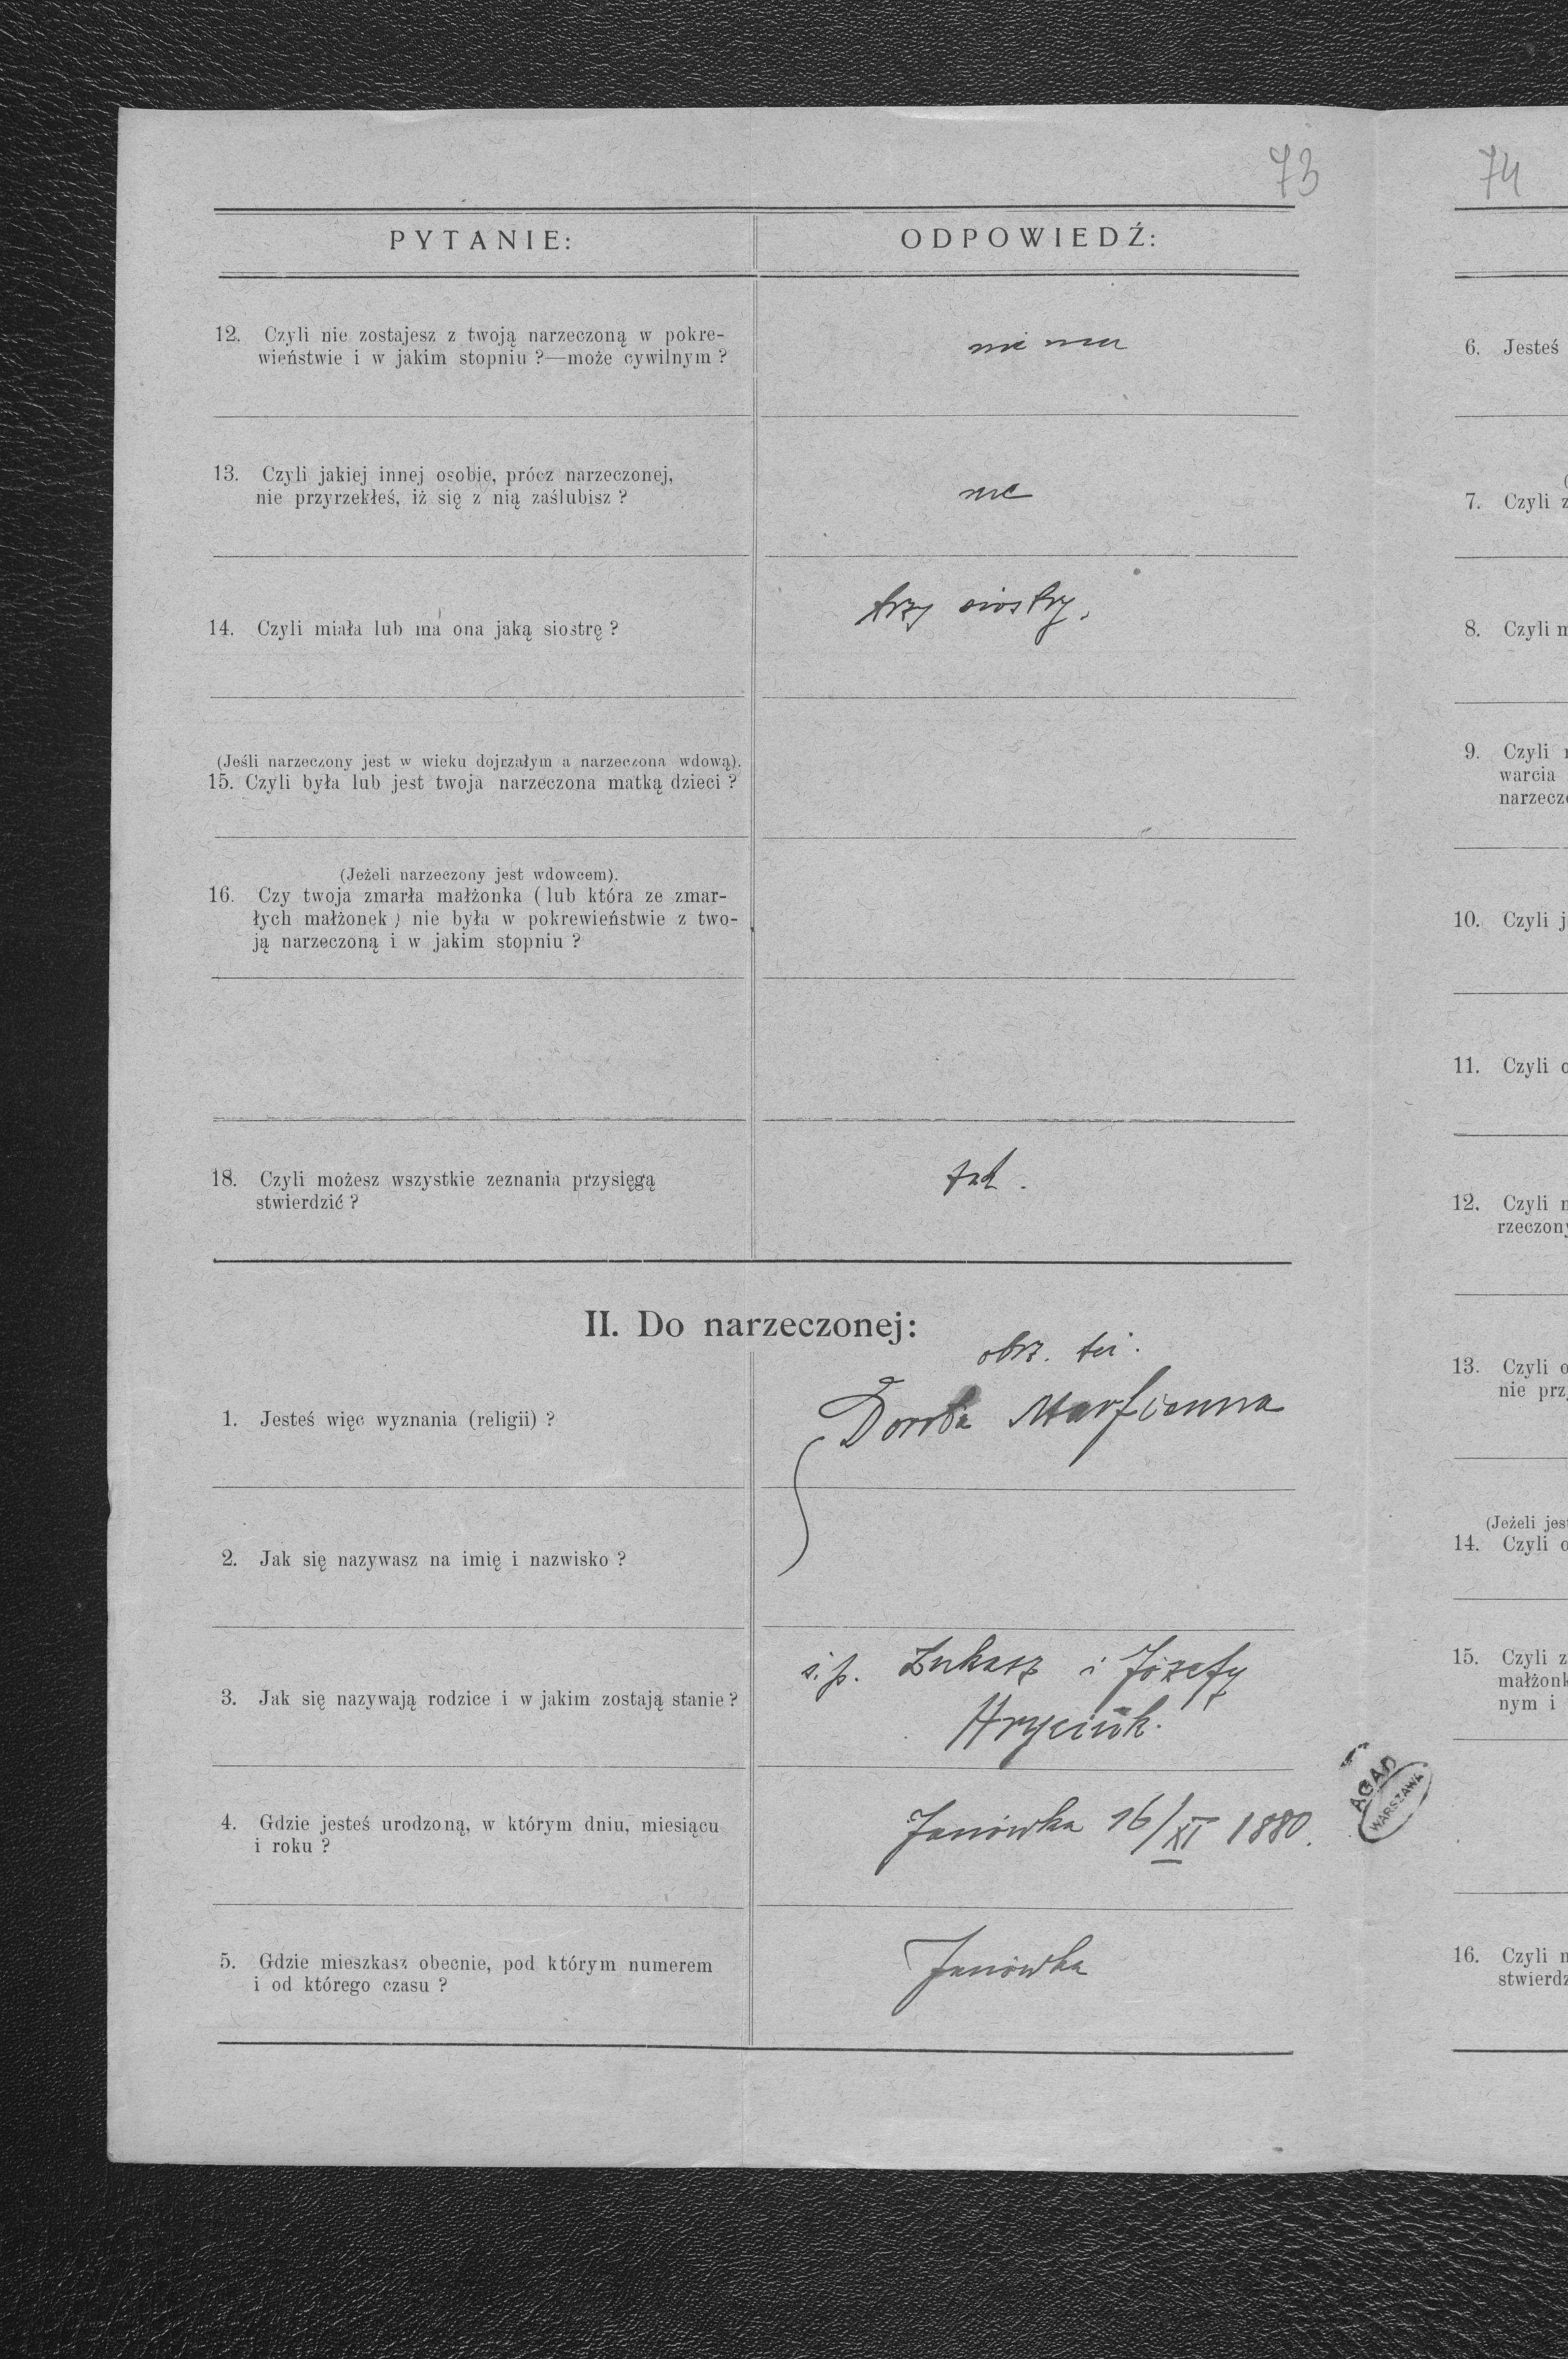 73
PYTANIE:
ODPOWIEDŹ:
12. Czyli nie zostajesz z twoją narzeczoną w pokre-
wieństwie i w jakim stopniu ?—może cywilnym ?
nie ma
13. Czyli jakiej innej osobie, prócz narzeczonej,
nie przyrzekłeś, iż się z nią zaślubisz ?
nie
14. Czyli miała lub ma ona jaką siostrę ?
trzy siostry.
(Jeśli narzeczony jest w wieku dojrzałym a narzeczona wdową).
15. Czyli była lub jest twoja narzeczona matką dzieci ?
(Jeżeli narzeczony jest wdowcem).
16. Czy twoja zmarła małżonka (lub która ze zmar-
łych małżonek) nie była w pokrewieństwie z two-
ją narzeczoną i w jakim stopniu ?
18. Czyli możesz wszystkie zeznania przysięgą
stwierdzić ?
tak.
II. Do narzeczonej:
obrz. łać.
1. Jesteś więc wyznania (religii) ?
Dorota
2. Jak się nazywasz na imię i nazwisko ?
3. Jak się nazywają rodzice i w jakim zostają stanie ?
ś. p. Łukasz i Józefy
Hryciuk.
4. Gdzie jesteś urodzoną, w którym dniu, miesiącu
i roku ?
Janówka 16/XI 1880.
5. Gdzie mieszkasz obecnie, pod którym numerem
i od którego czasu ?
Janówka
AGAD
WARSZAWA
74
6. Jesteś
7. Czyli z
8. Czyli m
9. Czyli
warcia
narzecz
10. Czyli j
11. Czyli o
12. Czyli n
rzeczon
13. Czyli o
nie prz
(Jeżeli jes
14. Czyli o
15. Czyli z
małżonk
nym i
16. Czyli m
stwierdz